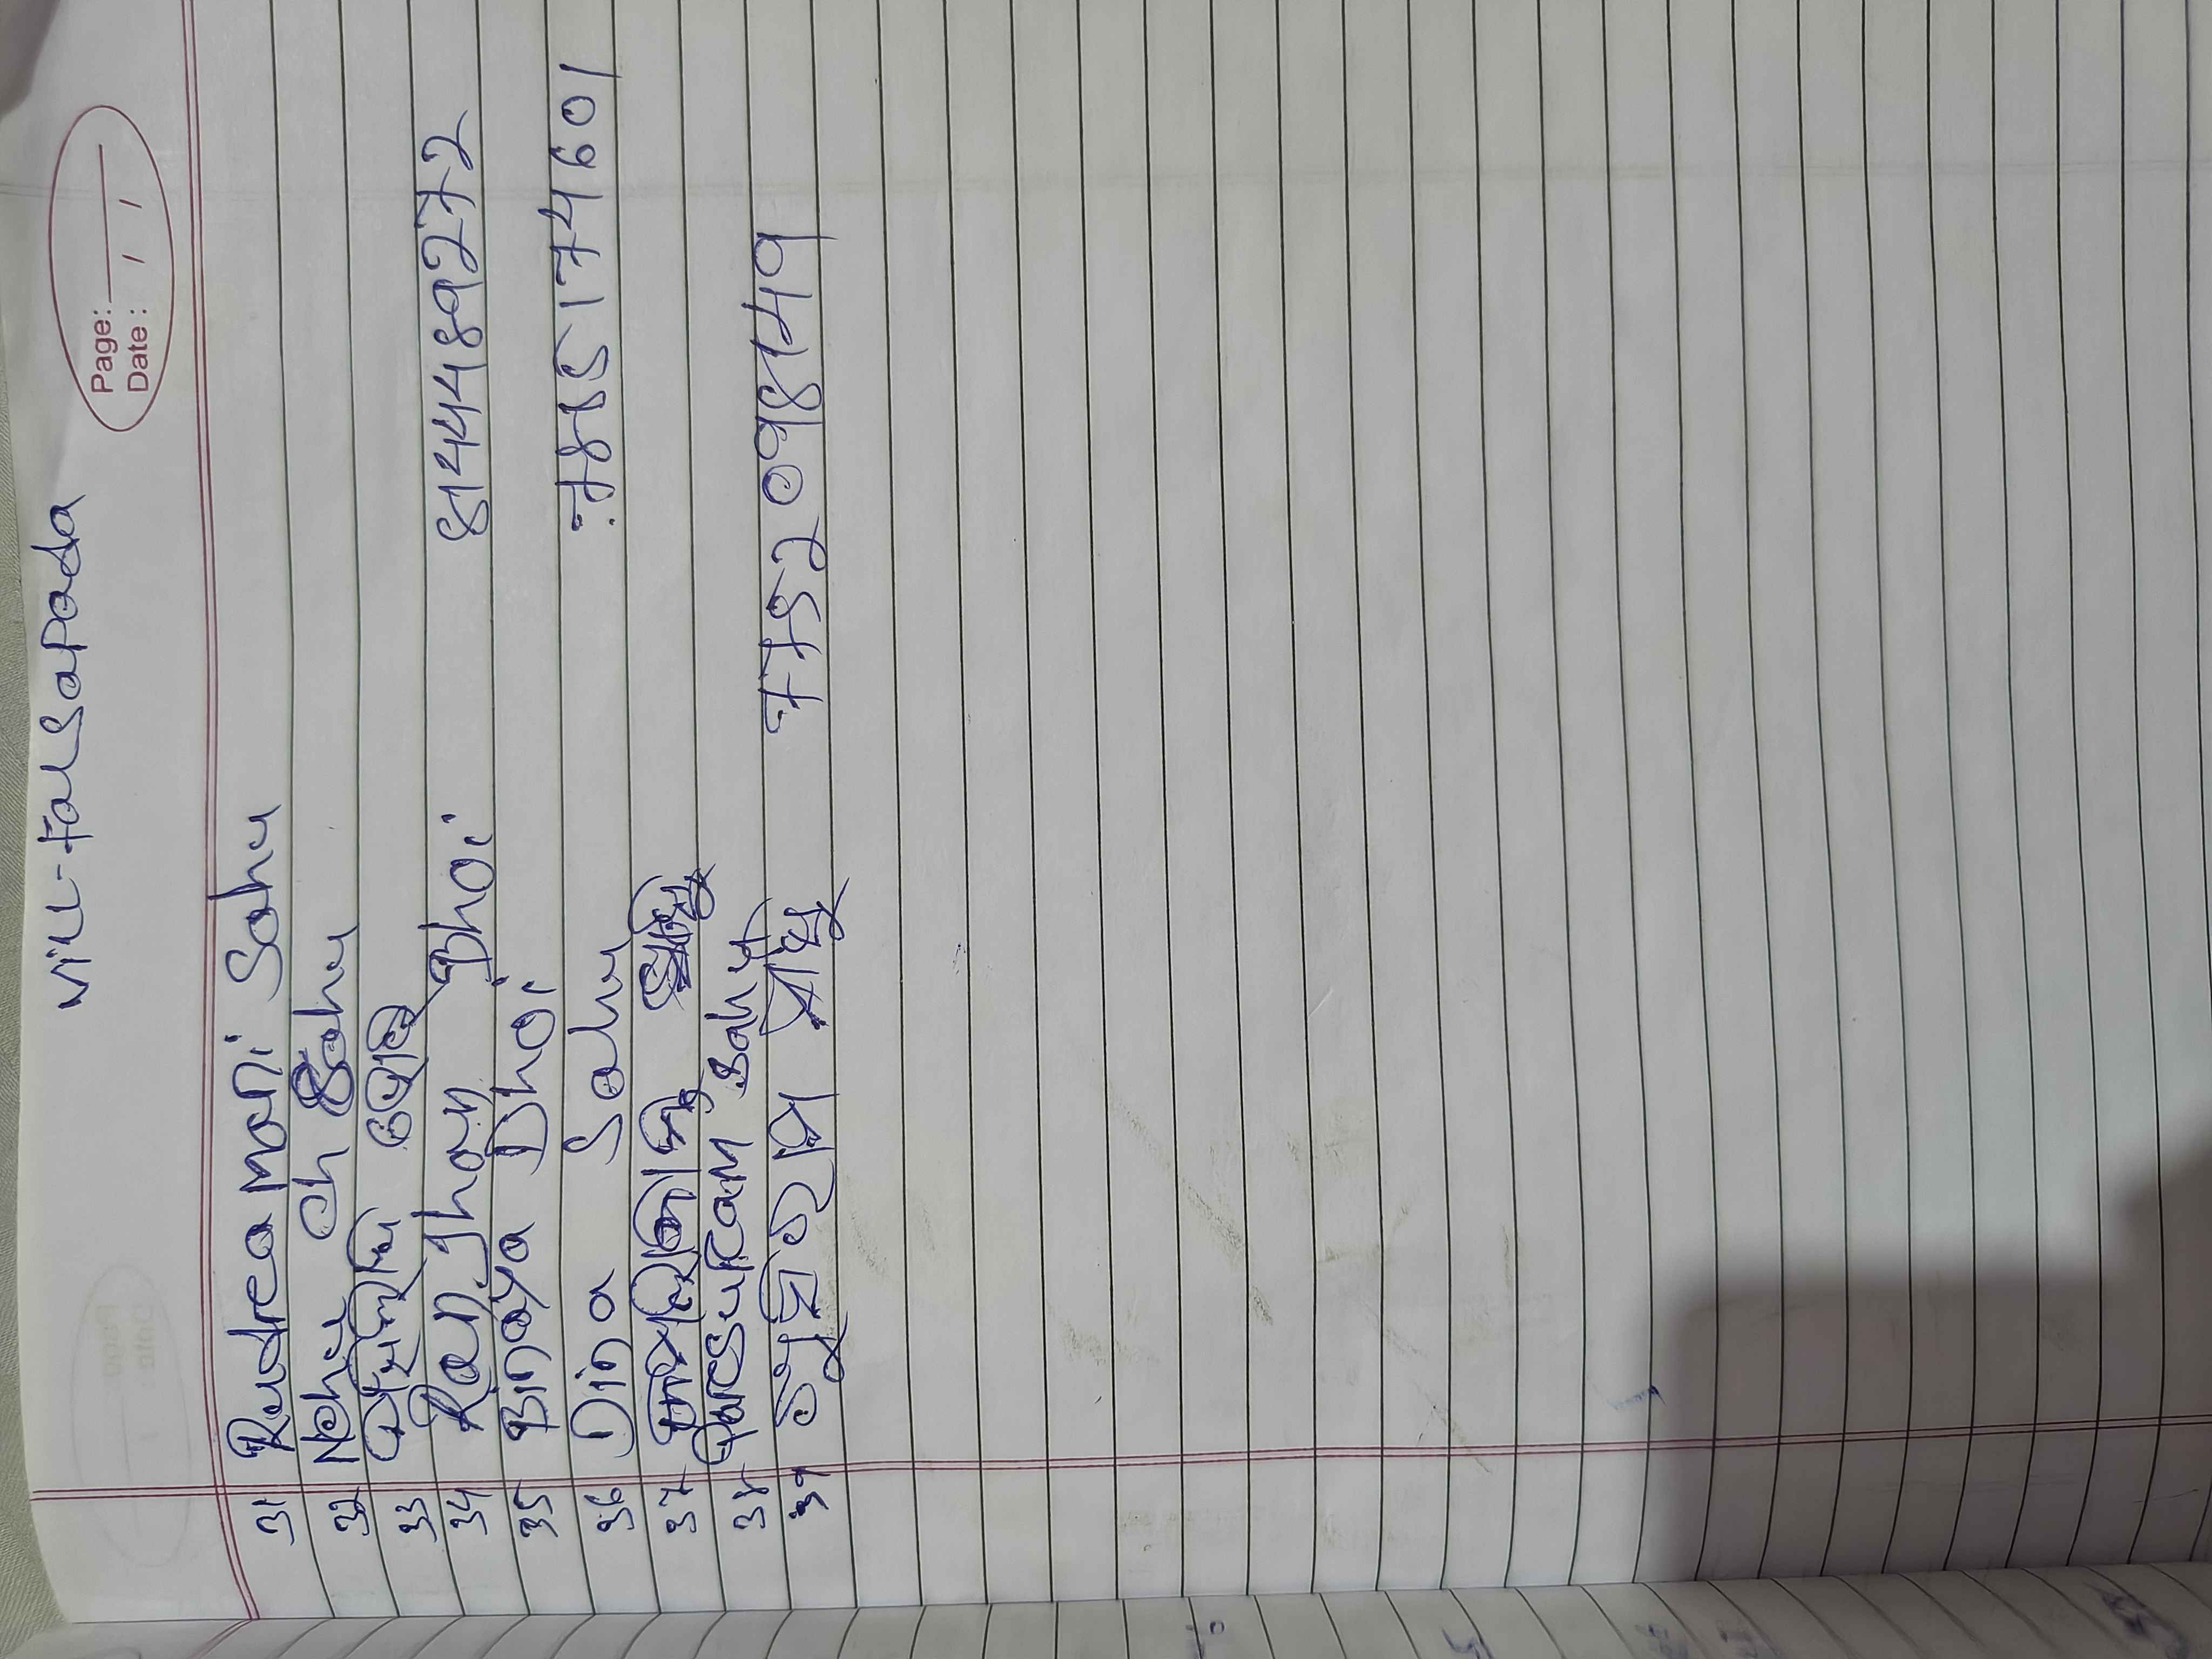 Vill - Talsapada
Page:
Date: / /
31 Rudra Mani Sahu
32 Nehru Ch Sahu
33 ଭୋଇ
34 Ranjhan Bhoi 8144489272
35 Binaya Bhoi
36 Dina Sahu 7815174601
37
38 Parsuram Sahu
39 ସାହୁ 7752098149